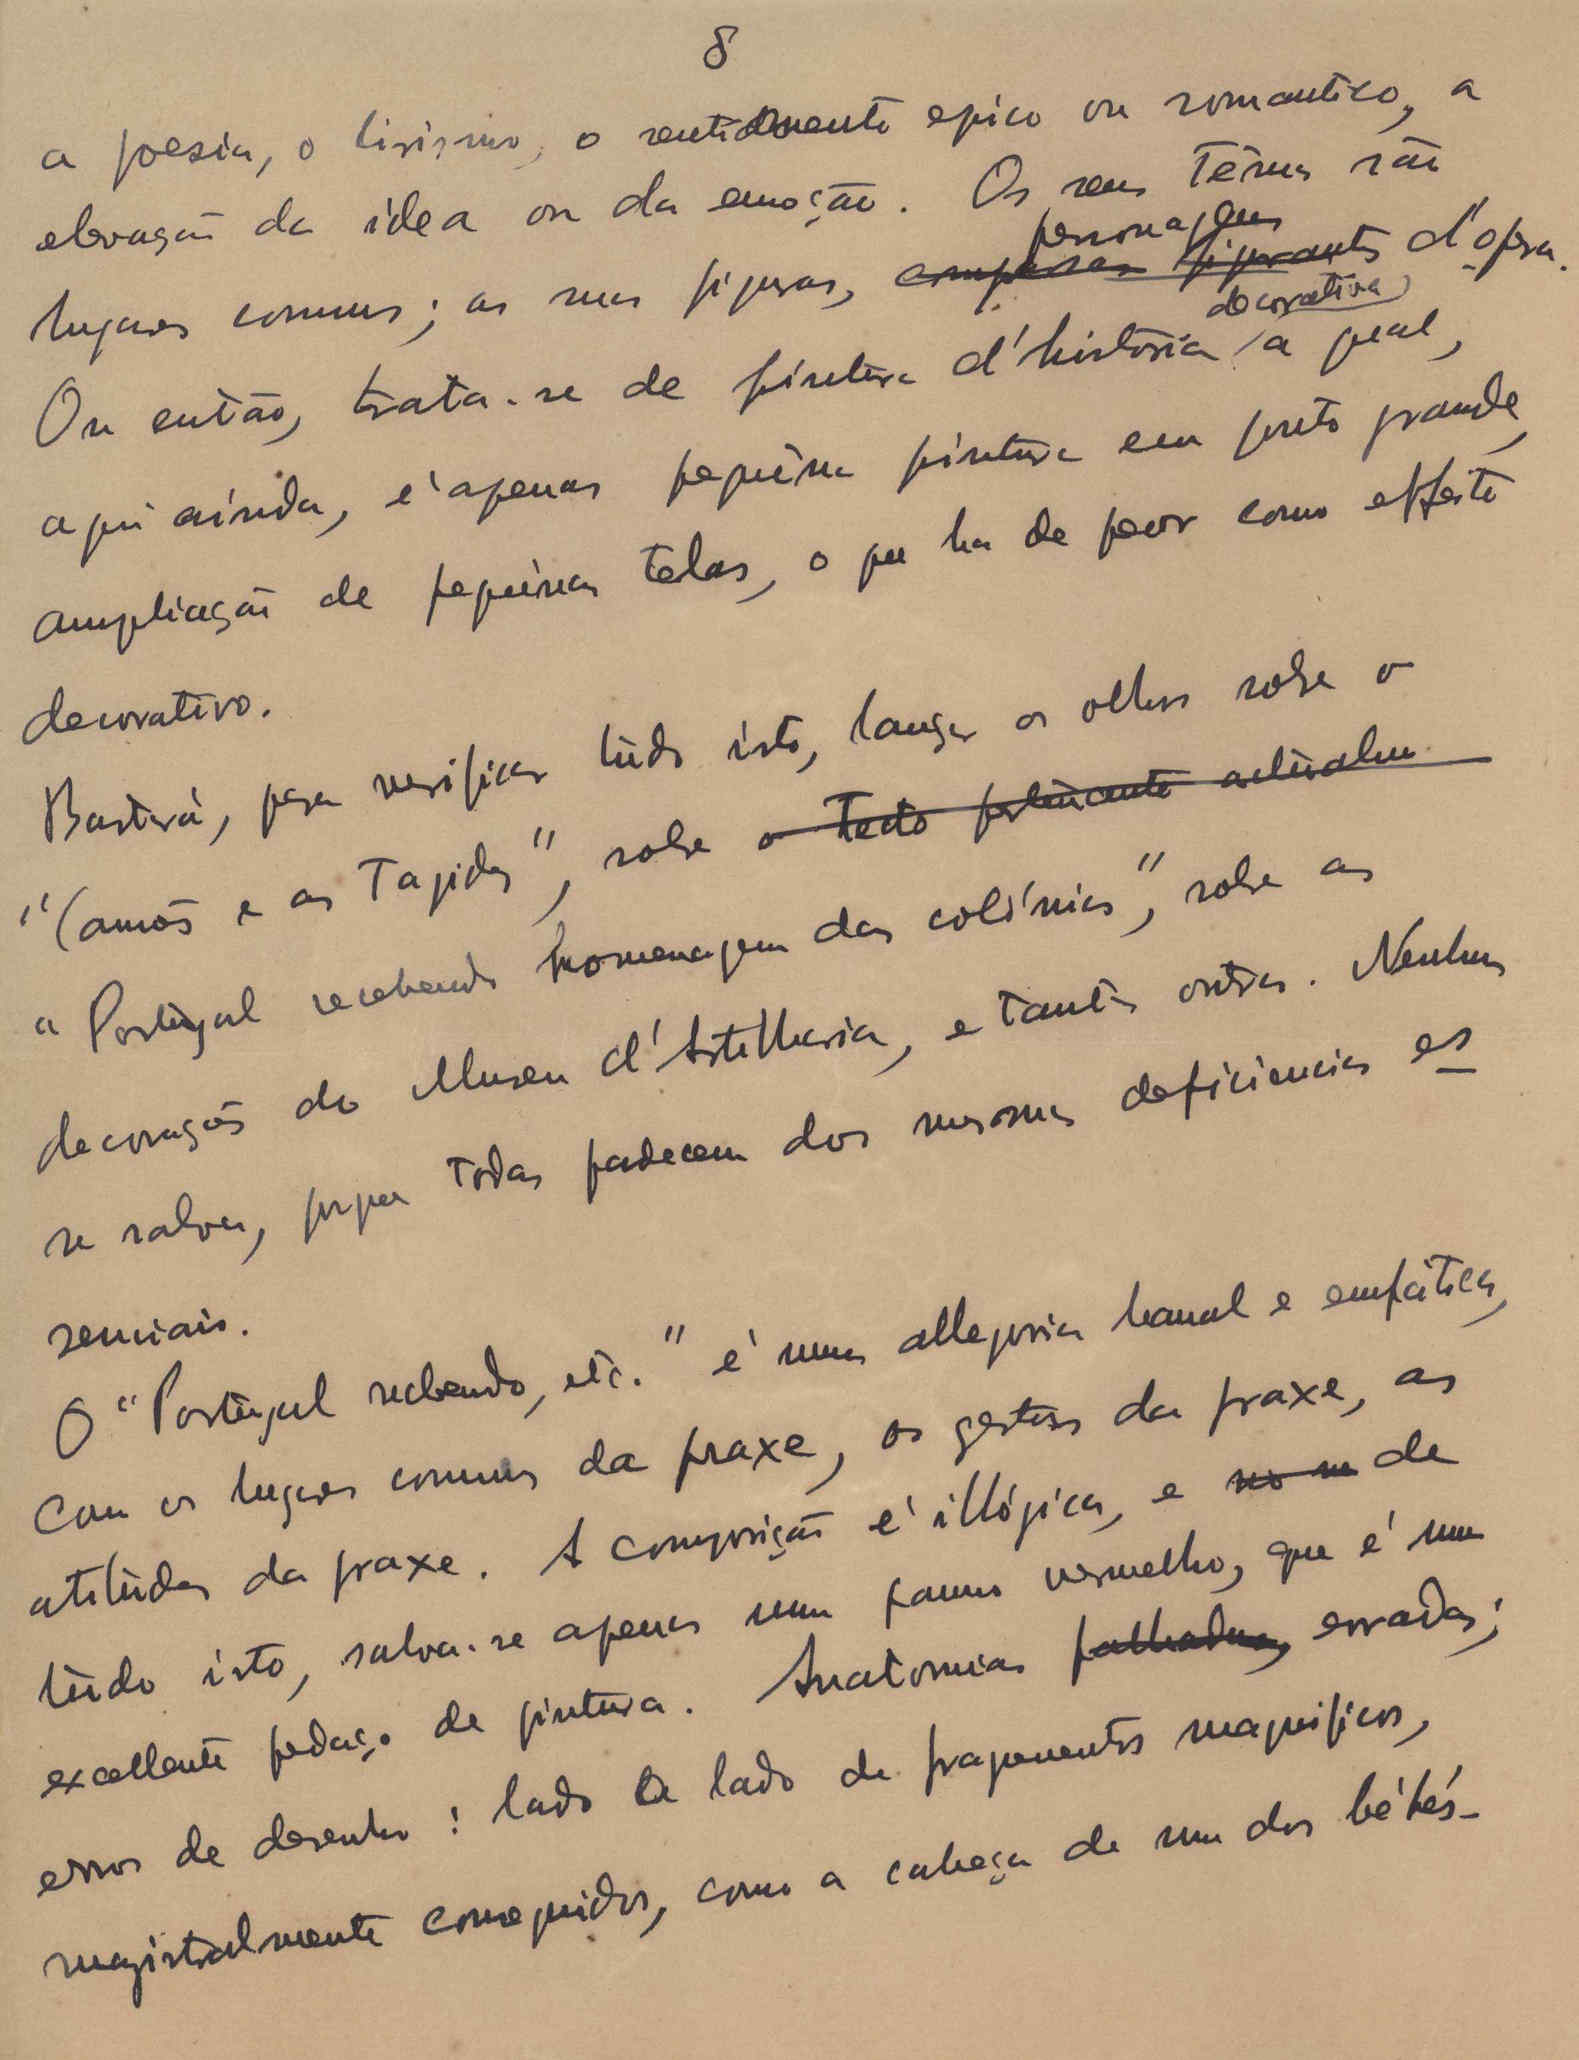 8
a poesia, o lirismo, o sentimento epico ou romantico, a
elevação da idea ou da emoção. Os seus têmas são
personagens
lugares comuns; as suas figuras, comparsas figurantes d'opera.
decorativa
Ou então, trata-se de pintura d'história, a qual,
aqui ainda, é apenas pequêna pintura em ponto grande,
ampliação de pequênas telas, o que ha de peor como effeito
decorativo.
Bastará, para verificar tudo isto, lançar os olhos sobre o
"Camões e as Tagides", sobre o Tecto pertencente actualm
"Portugal recebendo homenagem das colónias", sobre as
decorações do Museu d'Artelharia, e tantas outras. Nenhuma
se salva, porque todas padecem das mesmas deficiencias es
senciais.
O "Portugal recebendo, etc." é uma allegoria banal e emfática,
com os lugares comuns da praxe, os gestos da praxe, as
atitudes da praxe. A composição é illógica, e no m de
tudo isto, salva-se apenas um panno vermelho, que é um
excellente pedaço de pintura. Anatomias falhadas, erradas;
erros de desenho: lado a lado de fragmentos magnificos,
magistralmente conseguidos, como a cabeça de um dos bébés-